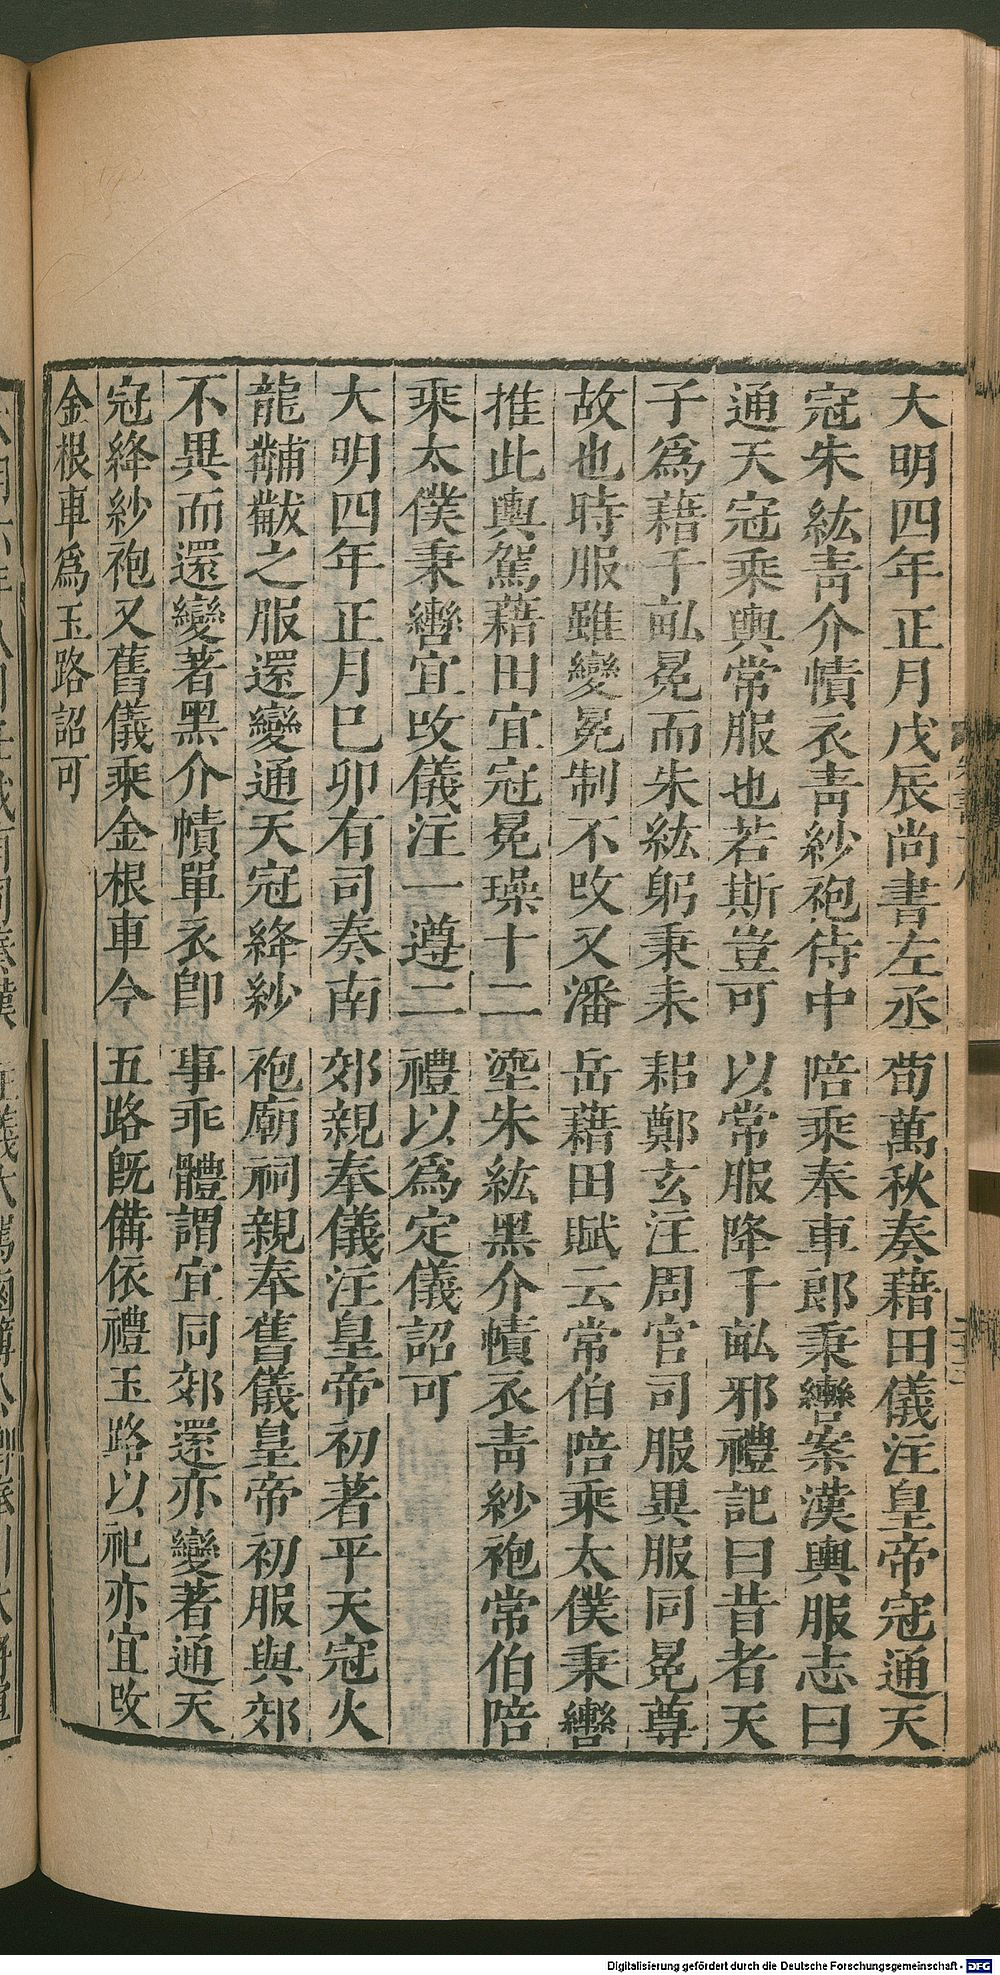 大明四年正月戊辰尚書左丞荀萬秋奏藉田儀注皇帝冠通天
冠朱紘靑介幘衣靑紗袍侍中陪乘奉車郎秉轡案漢輿服志曰
通天冠乘輿常服也若斯豈可以常服降千畝邪禮記曰昔者天
子爲藉千畝冕而朱紘躬秉耒耜鄭玄注周官司服異服同冕尊
故也時服雖變冕制不改又潘岳藉田賦云常伯陪乘太僕秉轡
推此輿駕藉田宜冠冕璪十二塗朱紘黑介幘衣靑紗袍常伯陪
乘太僕秉轡宜改儀注一遵二禮以爲定儀詔可
大明四年正月巳卯有司奏南郊親奉儀注皇帝初著平天冠火
龍黼黻之服還變通天冠絳紗袍廟祠親奉舊儀皇帝初服與郊
不異而還變著黑介幘單衣卽事乖體謂宜同郊還亦變著通天
冠絳紗袍又舊儀乘金根車今五路旣備依禮玉路以祀亦宜改
金根車爲玉路詔可
Digitalisierung gefördert durch die Deutsche Forschungsgemeinschaft - DFG